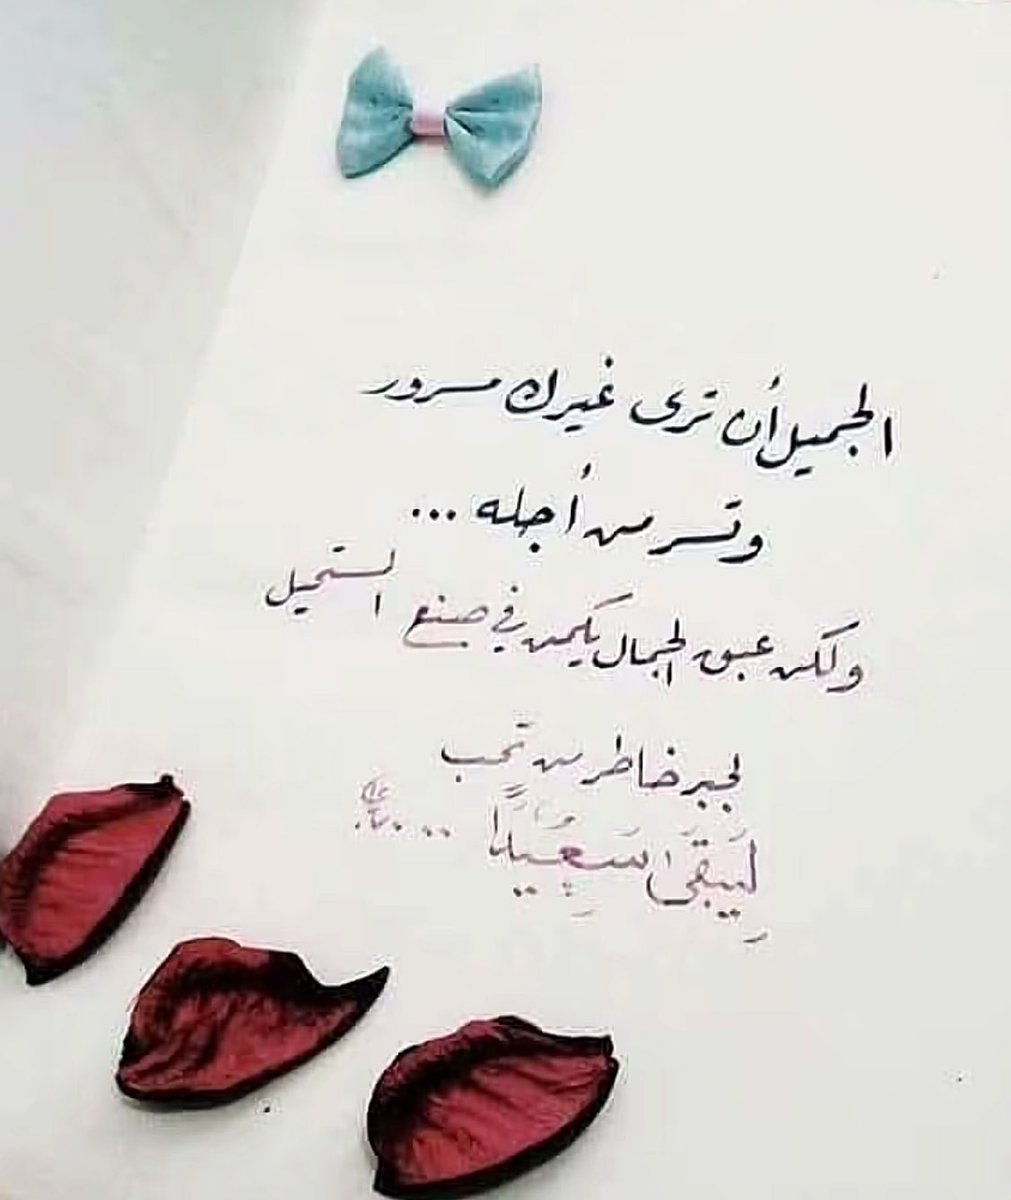 الجميل أن ترى غيرك مسرور
وتسر من أجله ...
ولكن عبق الجمال يكمن في صنع المستحيل
لجبر خاطر من تحب
لِيَبْقَى سَعِيدًا ....